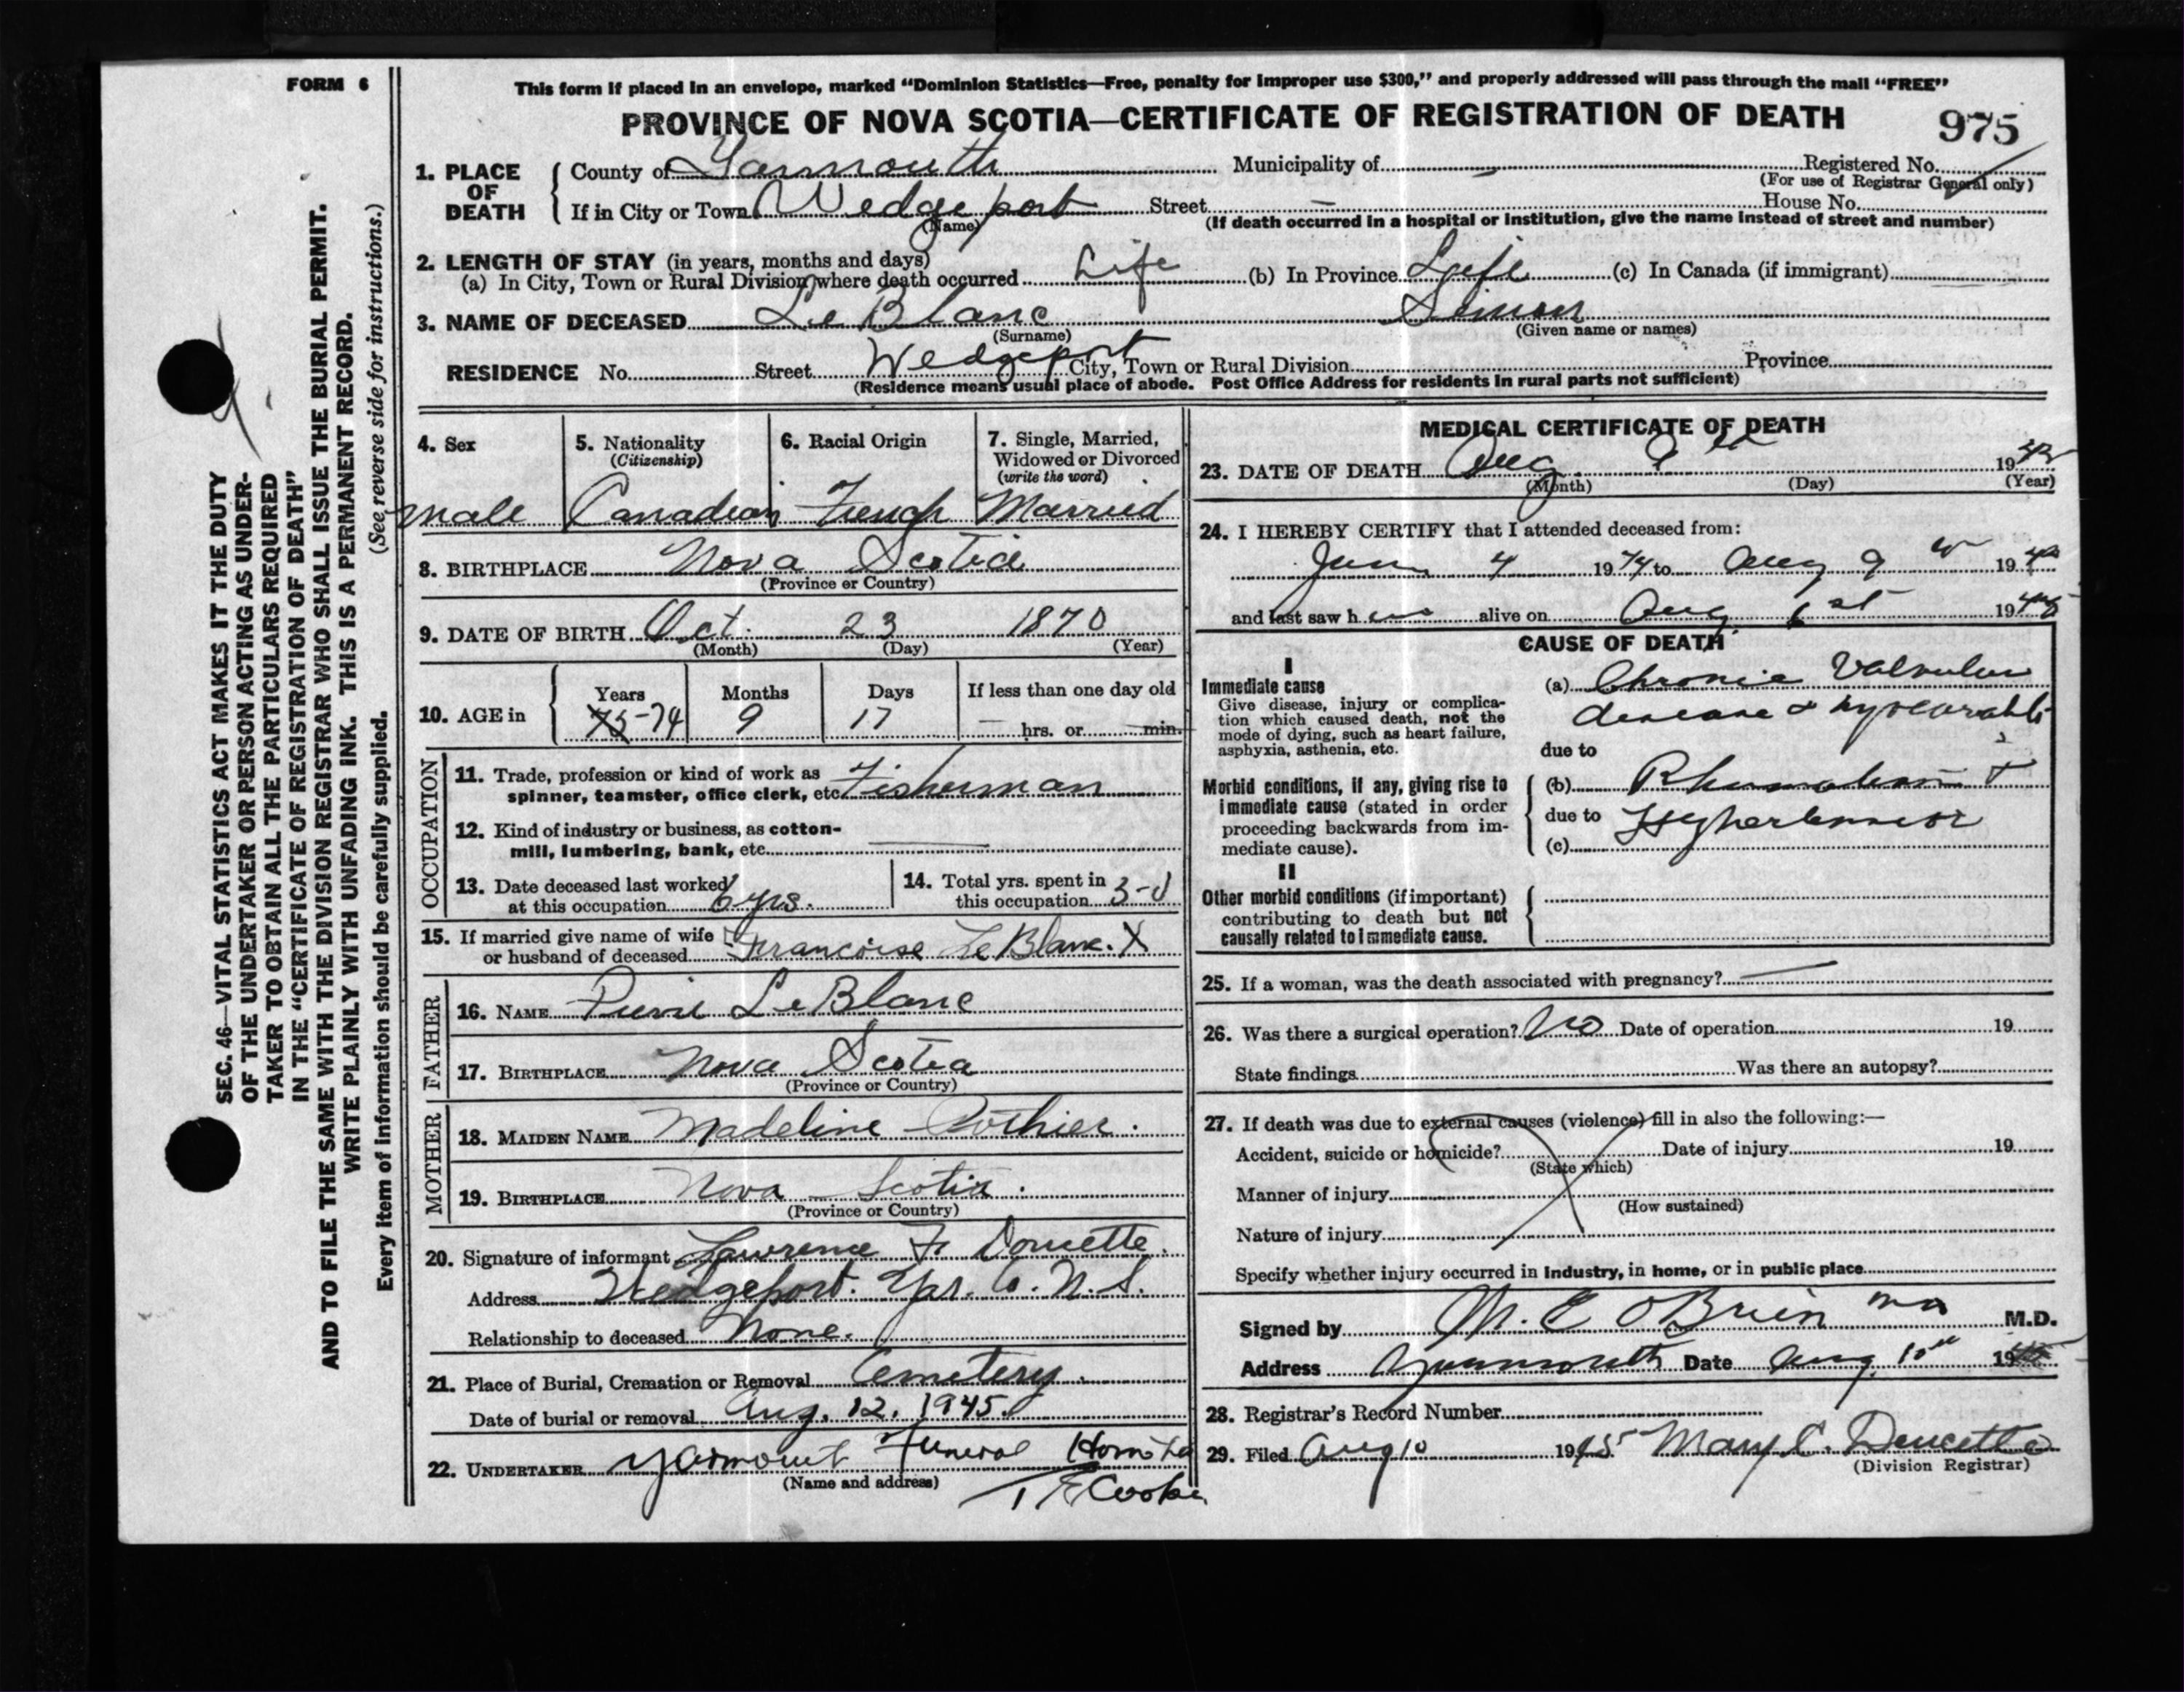 FORM 6
This form if placed in an envelope, marked "Dominion Statistics—Free, penalty for improper use $300," and properly addressed will pass through the mail "FREE"
PROVINCE OF NOVA SCOTIA—CERTIFICATE OF REGISTRATION OF DEATH
975
SEC. 46—VITAL STATISTICS ACT MAKES IT THE DUTY
OF THE UNDERTAKER OR PERSON ACTING AS UNDER-
TAKER TO OBTAIN ALL THE PARTICULARS REQUIRED
IN THE "CERTIFICATE OF REGISTRATION OF DEATH"
AND TO FILE THE SAME WITH THE DIVISION REGISTRAR WHO SHALL ISSUE THE BURIAL PERMIT.
WRITE PLAINLY WITH UNFADING INK. THIS IS A PERMANENT RECORD.
(See reverse side for instructions.)
Every item of information should be carefully supplied.
1. PLACE OF DEATH
County of Yarmouth Municipality of Registered No.
(For use of Registrar General only)
If in City or Town Wedgeport Street House No.
(Name) (If death occurred in a hospital or institution, give the name instead of street and number)
2. LENGTH OF STAY (in years, months and days)
(a) In City, Town or Rural Division where death occurred Life (b) In Province Life (c) In Canada (if immigrant)
3. NAME OF DECEASED Le Blanc Simon
(Surname) (Given name or names)
RESIDENCE No. Street Wedgeport City, Town or Rural Division Province
(Residence means usual place of abode. Post Office Address for residents in rural parts not sufficient)
4. Sex
male
5. Nationality
(Citizenship)
Canadian
6. Racial Origin
French
7. Single, Married,
Widowed or Divorced
(write the word)
Married
8. BIRTHPLACE Nova Scotia
(Province or Country)
9. DATE OF BIRTH Oct. 23 1870
(Month) (Day) (Year)
10. AGE in
Years Months Days If less than one day old
75-74 9 17 hrs. or min.
OCCUPATION
11. Trade, profession or kind of work as
spinner, teamster, office clerk, etc. Fisherman
12. Kind of industry or business, as cotton-
mill, lumbering, bank, etc.
13. Date deceased last worked
at this occupation 6 yrs.
14. Total yrs. spent in
this occupation
15. If married give name of wife
or husband of deceased Francoise Le Blanc. X
FATHER
16. NAME LeBlanc
17. BIRTHPLACE Nova Scotia
(Province or Country)
MOTHER
18. MAIDEN NAME Madeline Pothier.
19. BIRTHPLACE Nova Scotia.
(Province or Country)
20. Signature of informant Lawrence F. Doucette.
Address Wedgeport. Yar. Co. N.S.
Relationship to deceased None.
21. Place of Burial, Cremation or Removal Cemetery.
Date of burial or removal Aug. 12. 1945.
22. UNDERTAKER Funeral Home
(Name and address) Cooke
MEDICAL CERTIFICATE OF DEATH
23. DATE OF DEATH Aug. 9th 19
(Month) (Day) (Year)
24. I HEREBY CERTIFY that I attended deceased from:
4 19 to Aug 9 19
and last saw h alive on Aug 19
CAUSE OF DEATH
I
Immediate cause
Give disease, injury or complica-
tion which caused death, not the
mode of dying, such as heart failure,
asphyxia, asthenia, etc.
(a) Chronic Valvular
disease &
due to
Morbid conditions, if any, giving rise to
immediate cause (stated in order
proceeding backwards from im-
mediate cause).
(b) Rheumatism +
due to Hypertension
(c)
II
Other morbid conditions (if important)
contributing to death but not
causally related to immediate cause.
25. If a woman, was the death associated with pregnancy?
26. Was there a surgical operation? No Date of operation 19
State findings Was there an autopsy?
27. If death was due to external causes (violence) fill in also the following:—
Accident, suicide or homicide? Date of injury 19
(State which)
Manner of injury
(How sustained)
Nature of injury
Specify whether injury occurred in industry, in home, or in public place
Signed by M. E. O'Brien M.D.
Address Yarmouth Date Aug. 10th 19
28. Registrar's Record Number
29. Filed Aug 10 1945 Mary C. Doucette
(Division Registrar)